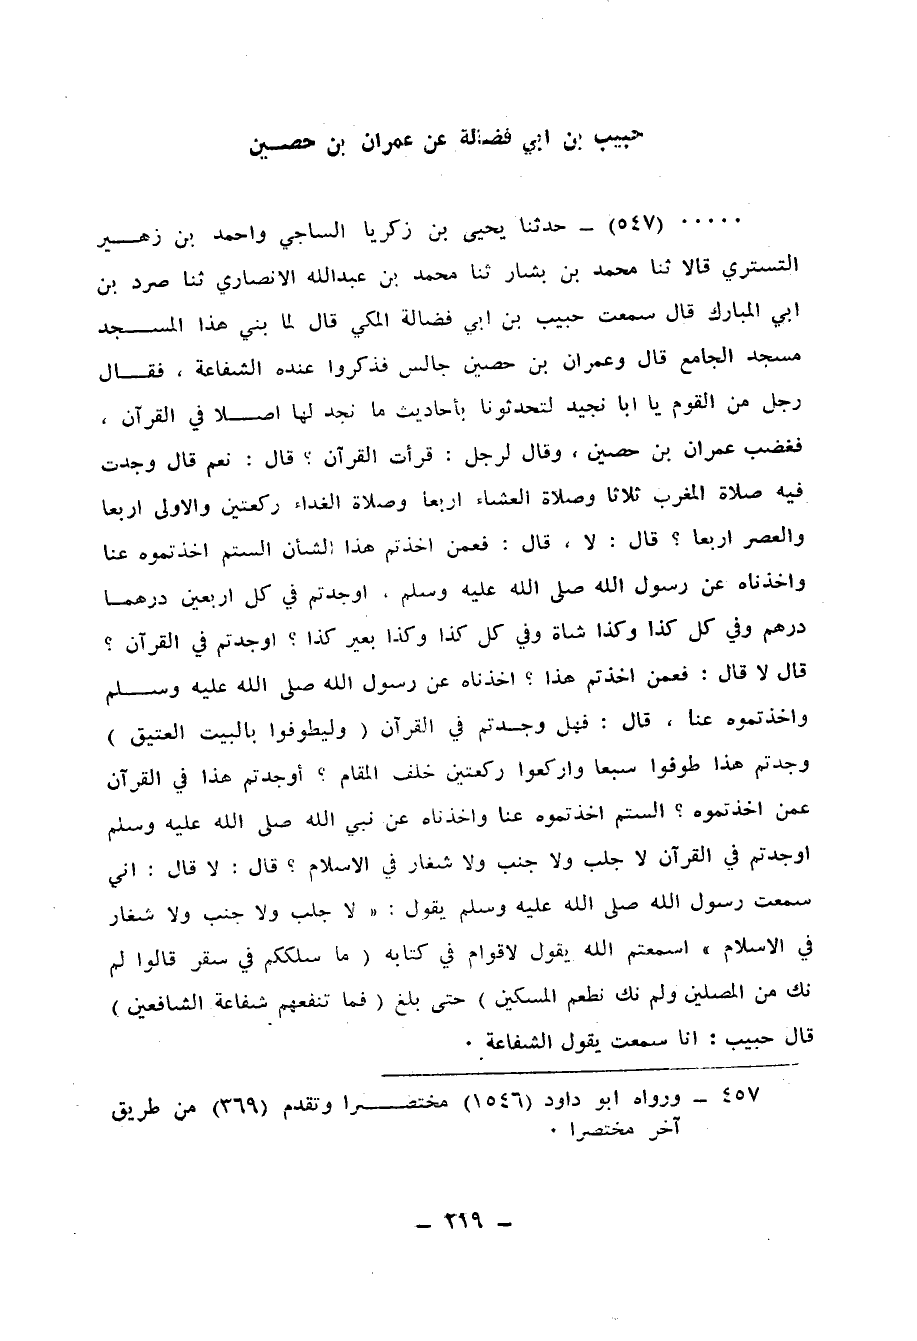 حبيب بن ابي فضالة عن عمران بن حصين
..... (٥٤٧) ــ حدثنا يحيى بن زكريا الساجي واحمد بن زهير
التستري قالا ثنا محمد بن بشار ثنا محمد بن عبدالله الانصاري ثنا صرد بن
ابي المبارك قال سمعت حبيب بن ابي فضالة المكي قال لما بني هذا المسجد
مسجد الجامع قال وعمران بن حصين جالس فذكروا عنده الشفاعة ، فقال
رجل من القوم يا ابا نجيد لتحدثونا بأحاديث ما نجد لها اصلا في القرآن ،
فغضب عمران بن حصين ، وقال لرجل : قرأت القرآن ؟ قال : نعم قال وجدت
فيه صلاة المغرب ثلاثا وصلاة العشاء اربعا وصلاة الغداء ركعتين والاولى اربعا
والعصر اربعا ؟ قال : لا ، قال : فعمن اخذتم هذا الشأن الستم اخذتموه عنا
واخذناه عن رسول الله صلى الله عليه وسلم ، اوجدتم في كل اربعين درهما
درهم وفي كل كذا وكذا شاة وفي كل كذا وكذا بعير كذا ؟ اوجدتم في القرآن ؟
قال لا قال : فعمن اخذتم هذا ؟ اخذناه عن رسول الله صلى الله عليه وسلم
واخذتموه عنا ، قال : فهل وجدتم في القرآن ( وليطوفوا بالبيت العتيق )
وجدتم هذا طوفوا سبعا واركعوا ركعتين خلف المقام ؟ أوجدتم هذا في القرآن
عمن اخذتموه ؟ الستم اخذتموه عنا واخذناه عن نبي الله صلى الله عليه وسلم
اوجدتم في القرآن لا جلب ولا جنب ولا شغار في الاسلام ؟ قال : لا قال : اني
سمعت رسول الله صلى الله عليه وسلم يقول : « لا جلب ولا جنب ولا شغار
في الاسلام » اسمعتم الله يقول لاقوام في كتابه ( ما سلككم في سقر قالوا لم
نك من المصلين ولم نك نطعم المسكين ) حتى بلغ ( فما تنفعهم شفاعة الشافعين )
قال حبيب : انا سمعت يقول الشفاعة .
٤٥٧ ــ ورواه ابو داود (١٥٤٦) مختصرا وتقدم (٣٦٩) من طريق
آخر مختصرا .
ــ ٢١٩ ــ